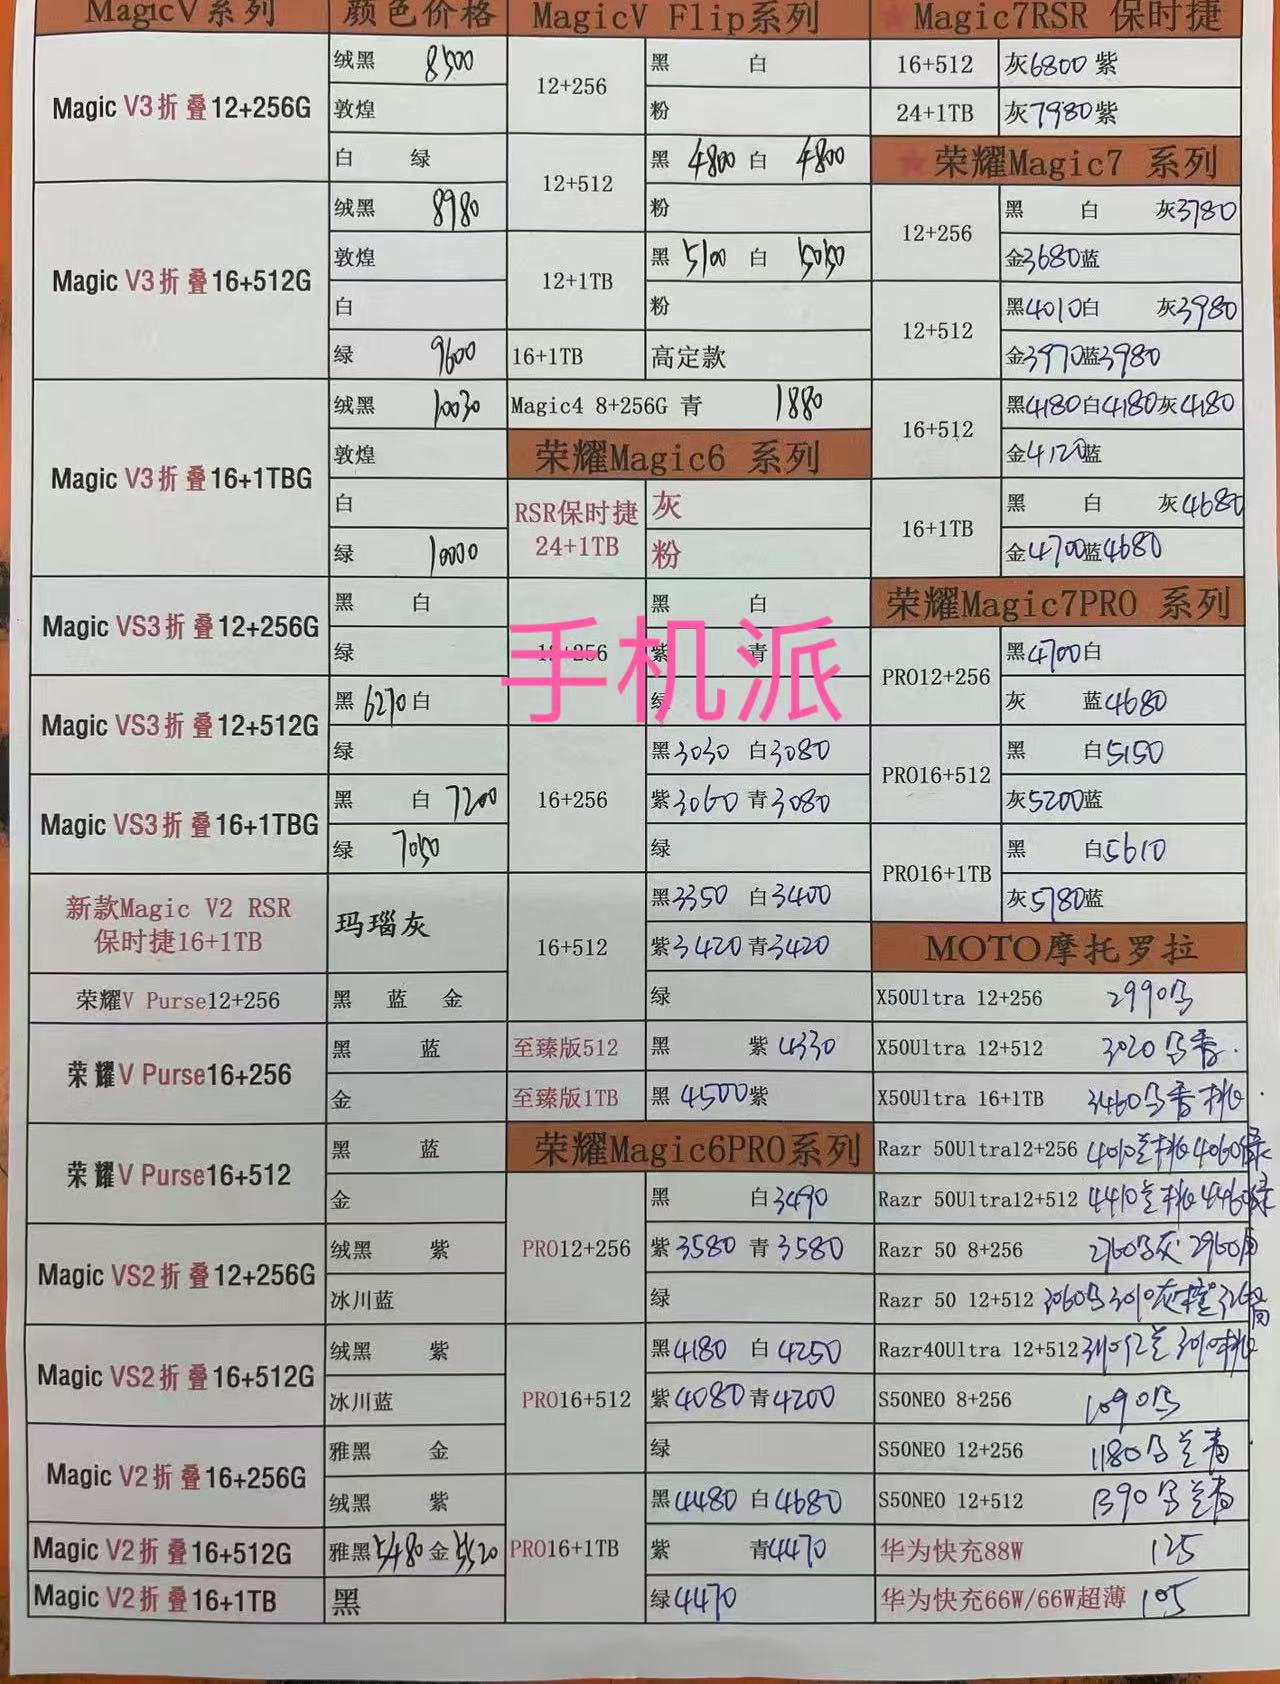 MagicV系列 颜色价格
Magic V3折叠12+256G 绒黑 8500
敦煌
白 绿
Magic V3折叠16+512G 绒黑 8980
敦煌
白
绿 9600
Magic V3折叠16+1TBG 绒黑 10030
敦煌
白
绿 10000
Magic VS3折叠12+256G 黑 白
绿
Magic VS3折叠12+512G 黑6270白
绿
Magic VS3折叠16+1TBG 黑 白 7200
绿 7050
新款Magic V2 RSR
保时捷16+1TB
玛瑙灰
荣耀V Purse12+256 黑 蓝 金
荣耀V Purse16+256 黑 蓝
金
荣耀V Purse16+512 黑 蓝
金
Magic VS2折叠12+256G 绒黑 紫
冰川蓝
Magic VS2折叠16+512G 绒黑 紫
冰川蓝
Magic V2折叠16+256G 雅黑 金
绒黑 紫
Magic V2折叠16+512G 雅黑5480金5520
Magic V2折叠16+1TB 黑
MagicV Flip系列
12+256 黑 白
粉
12+512 黑 4800 白 4800
粉
12+1TB 黑 5100 白 5050
粉
16+1TB 高定款
Magic4 8+256G 青 1880
荣耀Magic6 系列
RSR保时捷
24+1TB
灰
粉
12+256 黑 白
紫 青
绿
手机派
16+256 黑3030 白3080
紫3060 青3080
绿
16+512 黑3350 白3400
紫3420 青3420
绿
至臻版512 黑 紫 4330
至臻版1TB 黑 4500紫
荣耀Magic6PRO系列
PRO12+256 黑 白3490
紫3580 青3580
绿
PRO16+512 黑4180 白4250
紫4080 青4200
绿
PRO16+1TB 黑4480 白4680
紫 青4470
绿4470
★Magic7RSR 保时捷
16+512 灰6800 紫
24+1TB 灰7980紫
★荣耀Magic7 系列
12+256 黑 白 灰3780
金3680蓝
12+512 黑4010白 灰3980
金3970蓝3980
16+512 黑4180白4180灰4180
金4120蓝
16+1TB 黑 白 灰4680
金4700蓝4680
荣耀Magic7PRO 系列
PRO12+256 黑4700白
灰 蓝4680
PRO16+512 黑 白5150
灰5200蓝
PRO16+1TB 黑 白5610
灰5780蓝
MOTO摩托罗拉
X50Ultra 12+256 2990
X50Ultra 12+512 3020
X50Ultra 16+1TB 3460
Razr 50Ultra12+256 4010 4060绿
Razr 50Ultra12+512 4410 4460绿
Razr 50 8+256 2760 灰 2960
Razr 50 12+512 3060
Razr40Ultra 12+512
S50NEO 8+256 1090
S50NEO 12+256 1180
S50NEO 12+512 1390
华为快充88W 125
华为快充66W/66W超薄 105